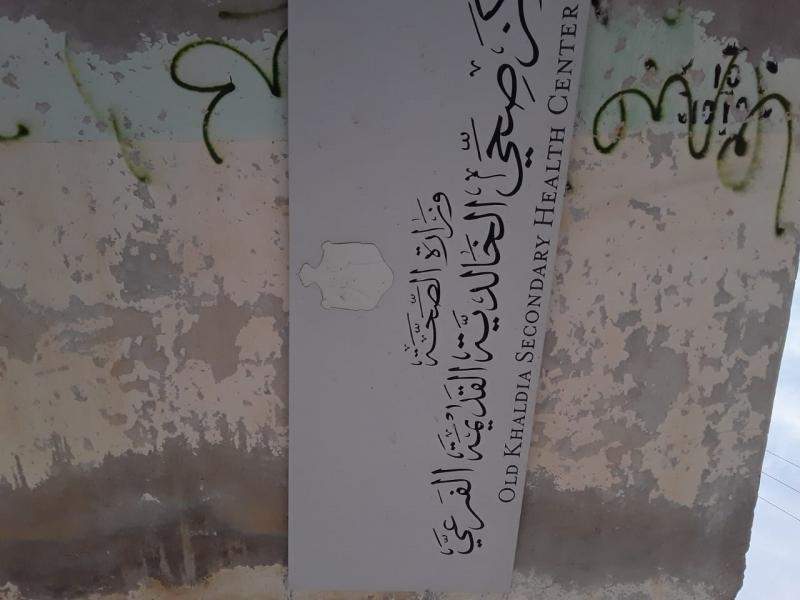 وزارة الصحة
مركز صحي الخالدية القديمة الفرعي
OLD KHALDIA SECONDARY HEALTH CENTER